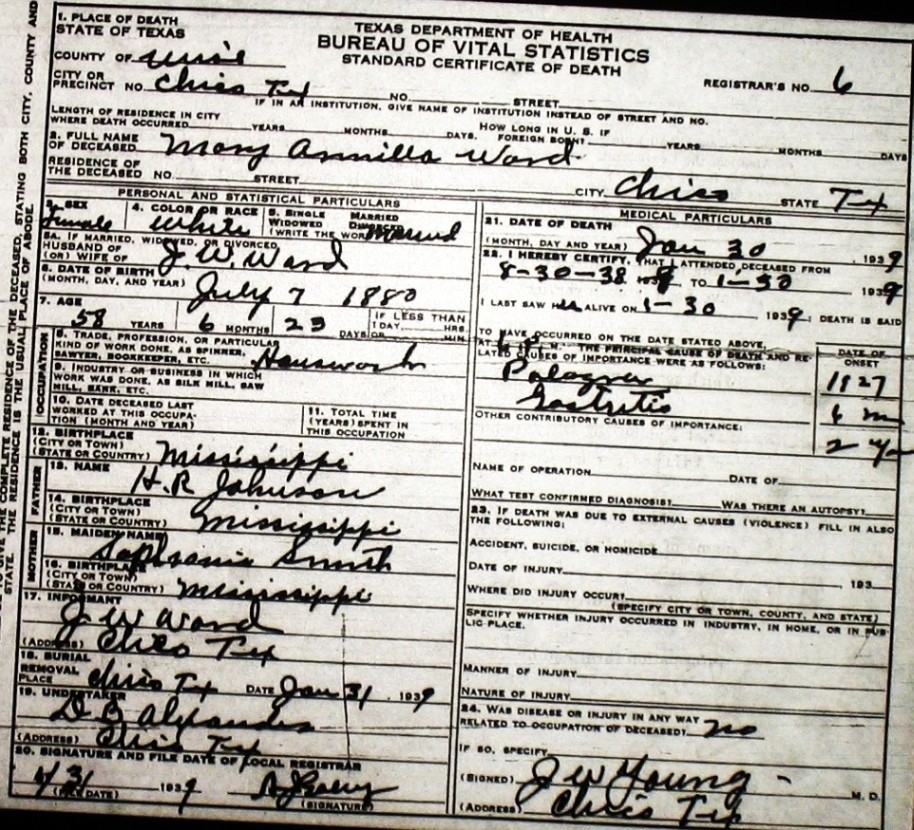 1. PLACE OF DEATH
STATE OF TEXAS
TEXAS DEPARTMENT OF HEALTH
BUREAU OF VITAL STATISTICS
STANDARD CERTIFICATE OF DEATH
COUNTY OF Wise
CITY OR
PRECINCT NO. Chico Tex NO. STREET
REGISTRAR'S NO. 6
IF IN AN INSTITUTION, GIVE NAME OF INSTITUTION INSTEAD OF STREET AND NO.
LENGTH OF RESIDENCE IN CITY
WHERE DEATH OCCURRED YEARS MONTHS DAYS. HOW LONG IN U. S. IF
FOREIGN BORN? YEARS MONTHS DAYS
2. FULL NAME
OF DECEASED Mary Ward
RESIDENCE OF
THE DECEASED NO. STREET CITY Chico STATE Tex
PERSONAL AND STATISTICAL PARTICULARS
3. SEX
Female
4. COLOR OR RACE
White
5. SINGLE MARRIED
WIDOWED DIVORCED
(WRITE THE WORD) Married
5A. IF MARRIED, WIDOWED, OR DIVORCED
HUSBAND OF
(OR) WIFE OF J. W. Ward
6. DATE OF BIRTH
(MONTH, DAY, AND YEAR) July 7 1880
7. AGE
58 YEARS 6 MONTHS 23 DAYS
IF LESS THAN
1 DAY, HRS.
OR MIN.
OCCUPATION
8. TRADE, PROFESSION, OR PARTICULAR
KIND OF WORK DONE, AS SPINNER,
SAWYER, BOOKKEEPER, ETC. Housework
9. INDUSTRY OR BUSINESS IN WHICH
WORK WAS DONE, AS SILK MILL, SAW
MILL, BANK, ETC.
10. DATE DECEASED LAST
WORKED AT THIS OCCUPA-
TION (MONTH AND YEAR)
11. TOTAL TIME
(YEARS) SPENT IN
THIS OCCUPATION
12. BIRTHPLACE
(CITY OR TOWN)
(STATE OR COUNTRY) Mississippi
FATHER
13. NAME
H. R. Johnson
14. BIRTHPLACE
(CITY OR TOWN)
(STATE OR COUNTRY) Mississippi
MOTHER
15. MAIDEN NAME
Sophronia Smith
16. BIRTHPLACE
(CITY OR TOWN)
(STATE OR COUNTRY) Mississippi
17. INFORMANT
J W Ward
(ADDRESS) Chico Tex
18. BURIAL
REMOVAL
PLACE Chico Tex DATE Jan 31 1939
19. UNDERTAKER
D B Alexander
(ADDRESS) Chico Tex
20. SIGNATURE AND FILE DATE OF LOCAL REGISTRAR
1939
(FILE DATE) (SIGNATURE)
MEDICAL PARTICULARS
21. DATE OF DEATH
(MONTH, DAY AND YEAR) Jan 30 1939
22. I HEREBY CERTIFY, THAT I ATTENDED DECEASED FROM
8-30-38 TO 1-30 1939
I LAST SAW ALIVE ON 1-30 1939; DEATH IS SAID
TO HAVE OCCURRED ON THE DATE STATED ABOVE,
AT M. THE PRINCIPAL CAUSE OF DEATH AND RE-
LATED CAUSES OF IMPORTANCE WERE AS FOLLOWS:
DATE OF
ONSET
1927
Gastritis 6 m
OTHER CONTRIBUTORY CAUSES OF IMPORTANCE:
NAME OF OPERATION DATE OF
WHAT TEST CONFIRMED DIAGNOSIS? WAS THERE AN AUTOPSY?
23. IF DEATH WAS DUE TO EXTERNAL CAUSES (VIOLENCE) FILL IN ALSO
THE FOLLOWING:
ACCIDENT, SUICIDE, OR HOMICIDE
DATE OF INJURY 193
WHERE DID INJURY OCCUR?
(SPECIFY CITY OR TOWN, COUNTY, AND STATE)
SPECIFY WHETHER INJURY OCCURRED IN INDUSTRY, IN HOME, OR IN PUB-
LIC PLACE.
MANNER OF INJURY
NATURE OF INJURY
24. WAS DISEASE OR INJURY IN ANY WAY
RELATED TO OCCUPATION OF DECEASED? no
IF SO, SPECIFY
(SIGNED) J W Young M. D.
(ADDRESS) Chico Tex
GIVE THE COMPLETE RESIDENCE OF THE DECEASED, STATING BOTH CITY, COUNTY AND
STATE. THE RESIDENCE IS THE USUAL PLACE OF ABODE.